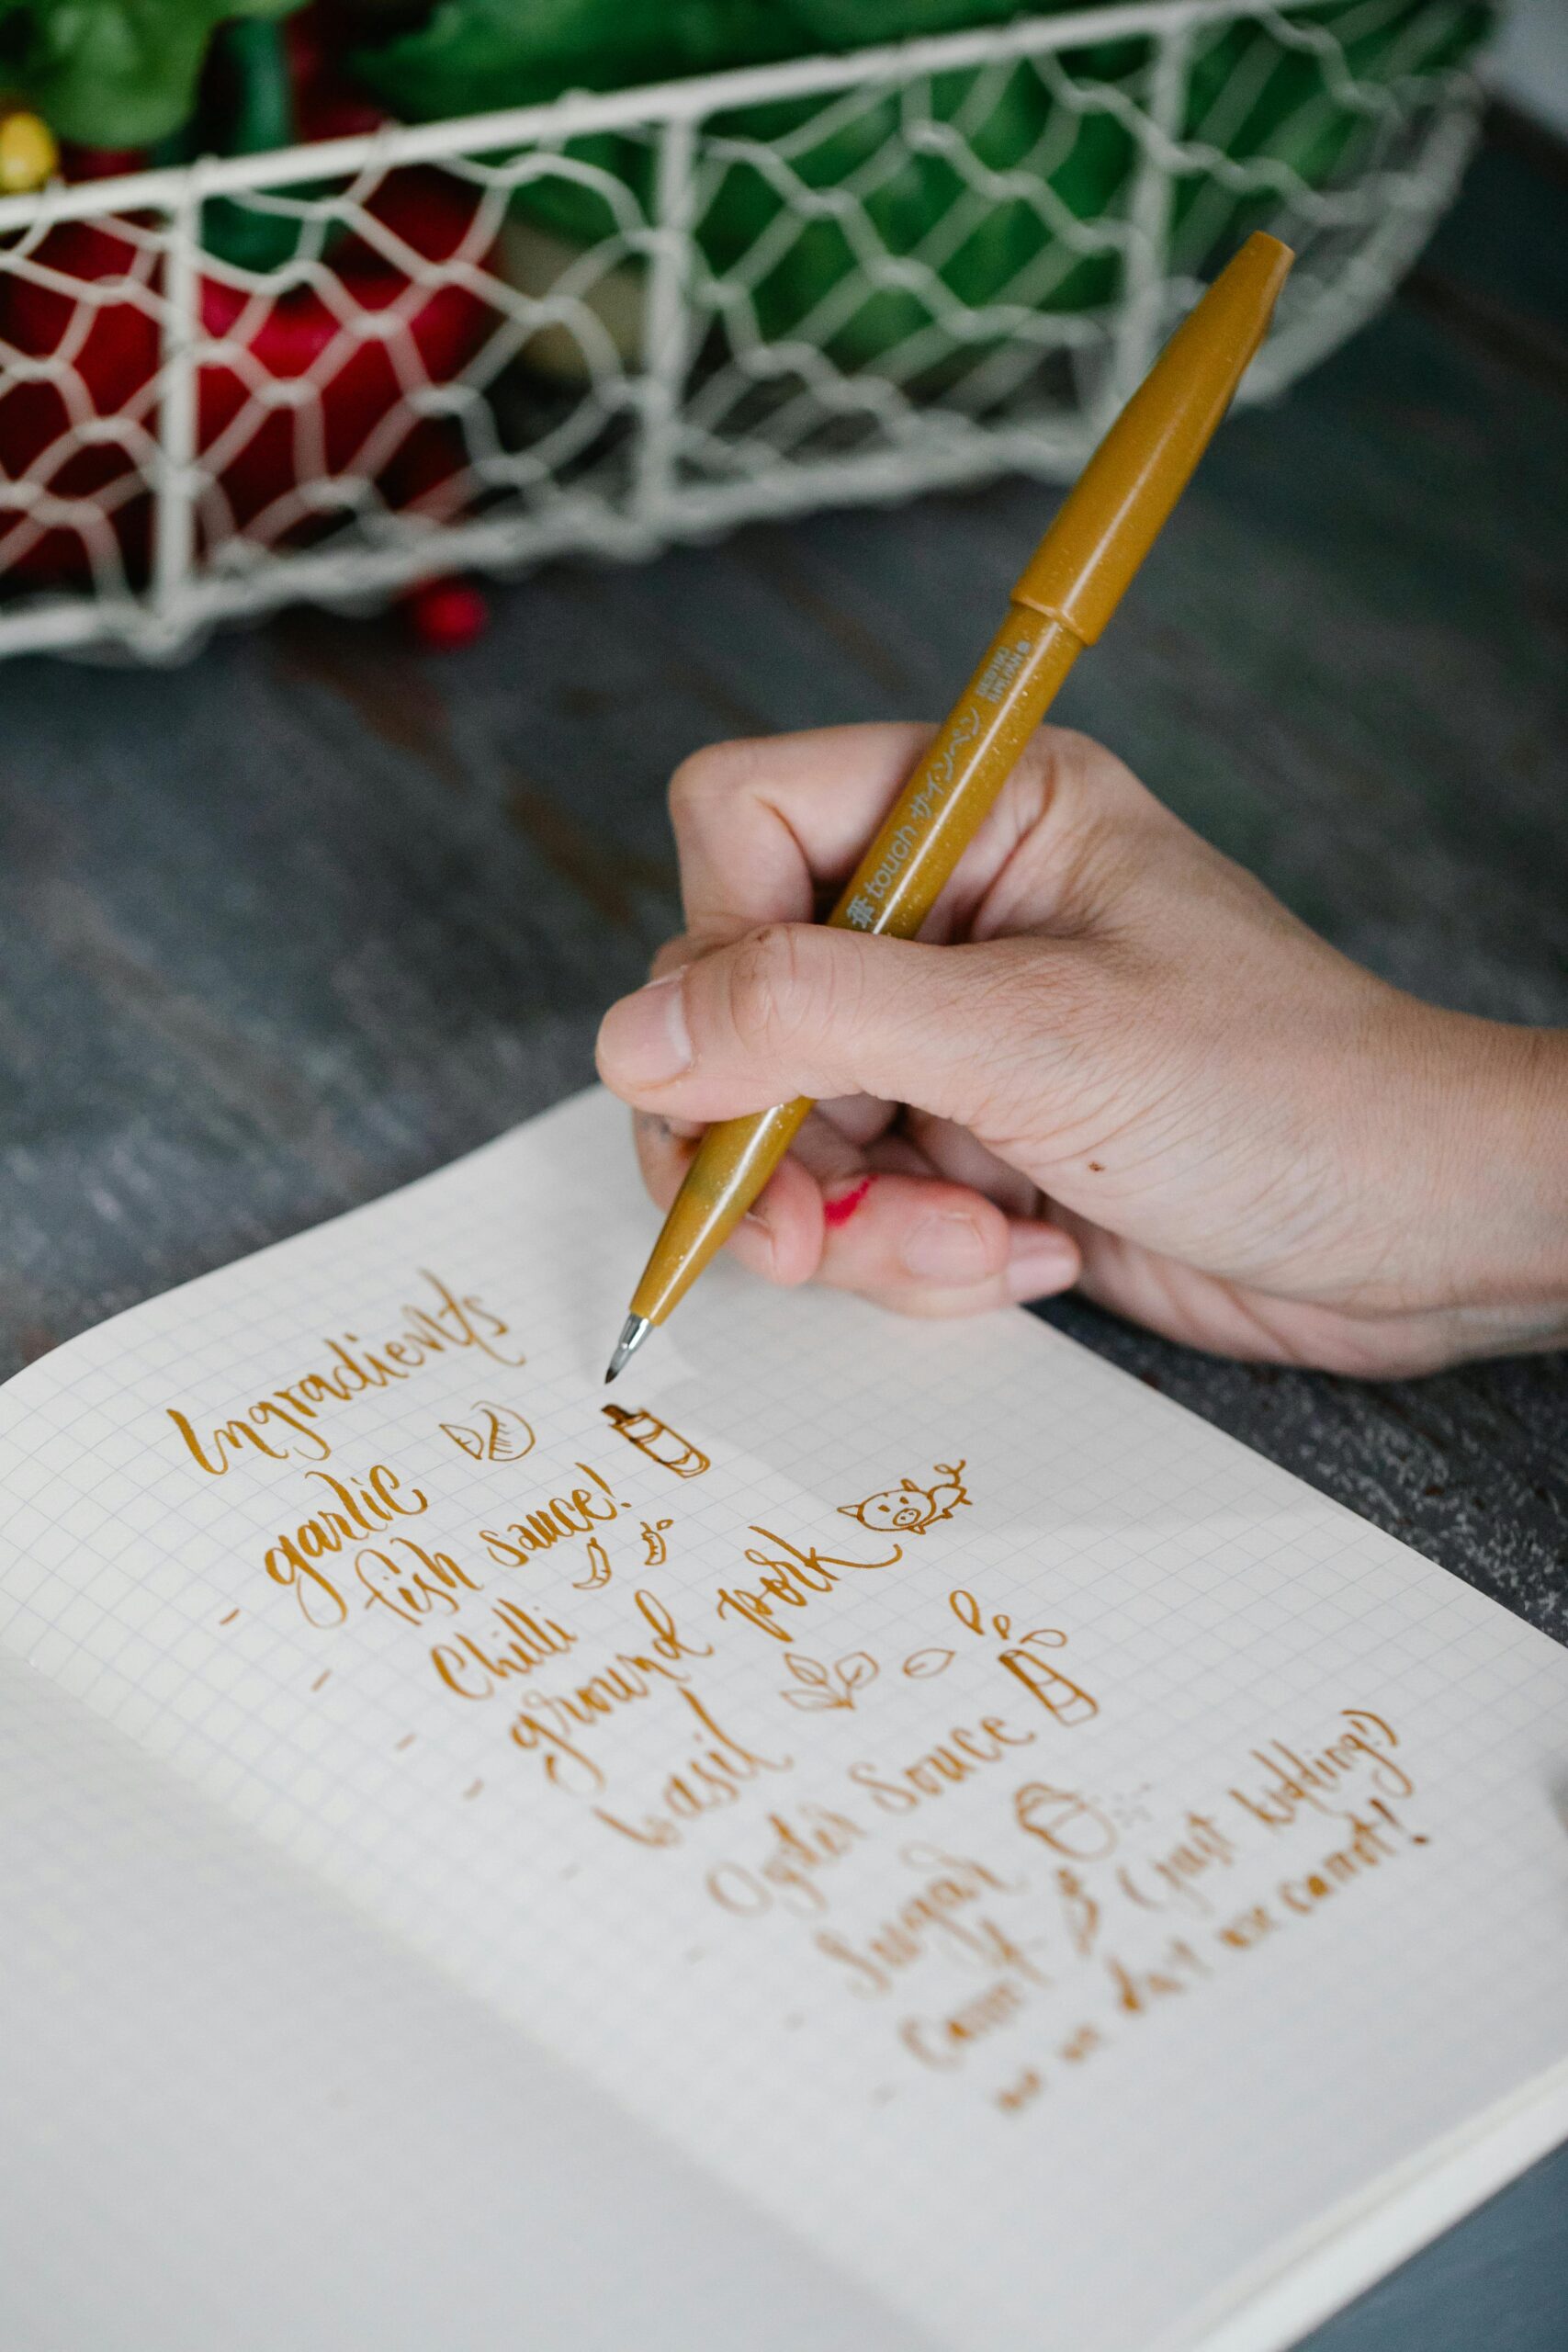 touch サインペン
Ingradients
- garlic
- fish sauce!
- Chilli
- ground pork
- basil
- Oyster Souce
- Sugar
- Carrot (just kidding!)
no no don't use carrot!